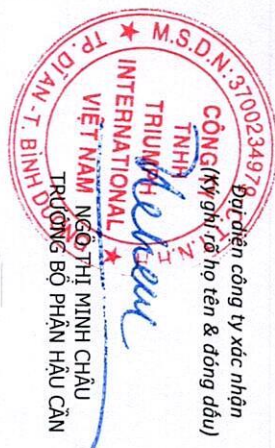 Đại diện công ty xác nhận
(Ký ghi rõ họ tên & đóng dấu)
M.S.D.N: 370023497
CÔNG
TNHH
TRIUMPH
INTERNATIONAL
VIỆT NAM
TP. DĨ AN - T. BÌNH D
NGÔ THỊ MINH CHÂU
TRƯỞNG BỘ PHẬN HẬU CẦN